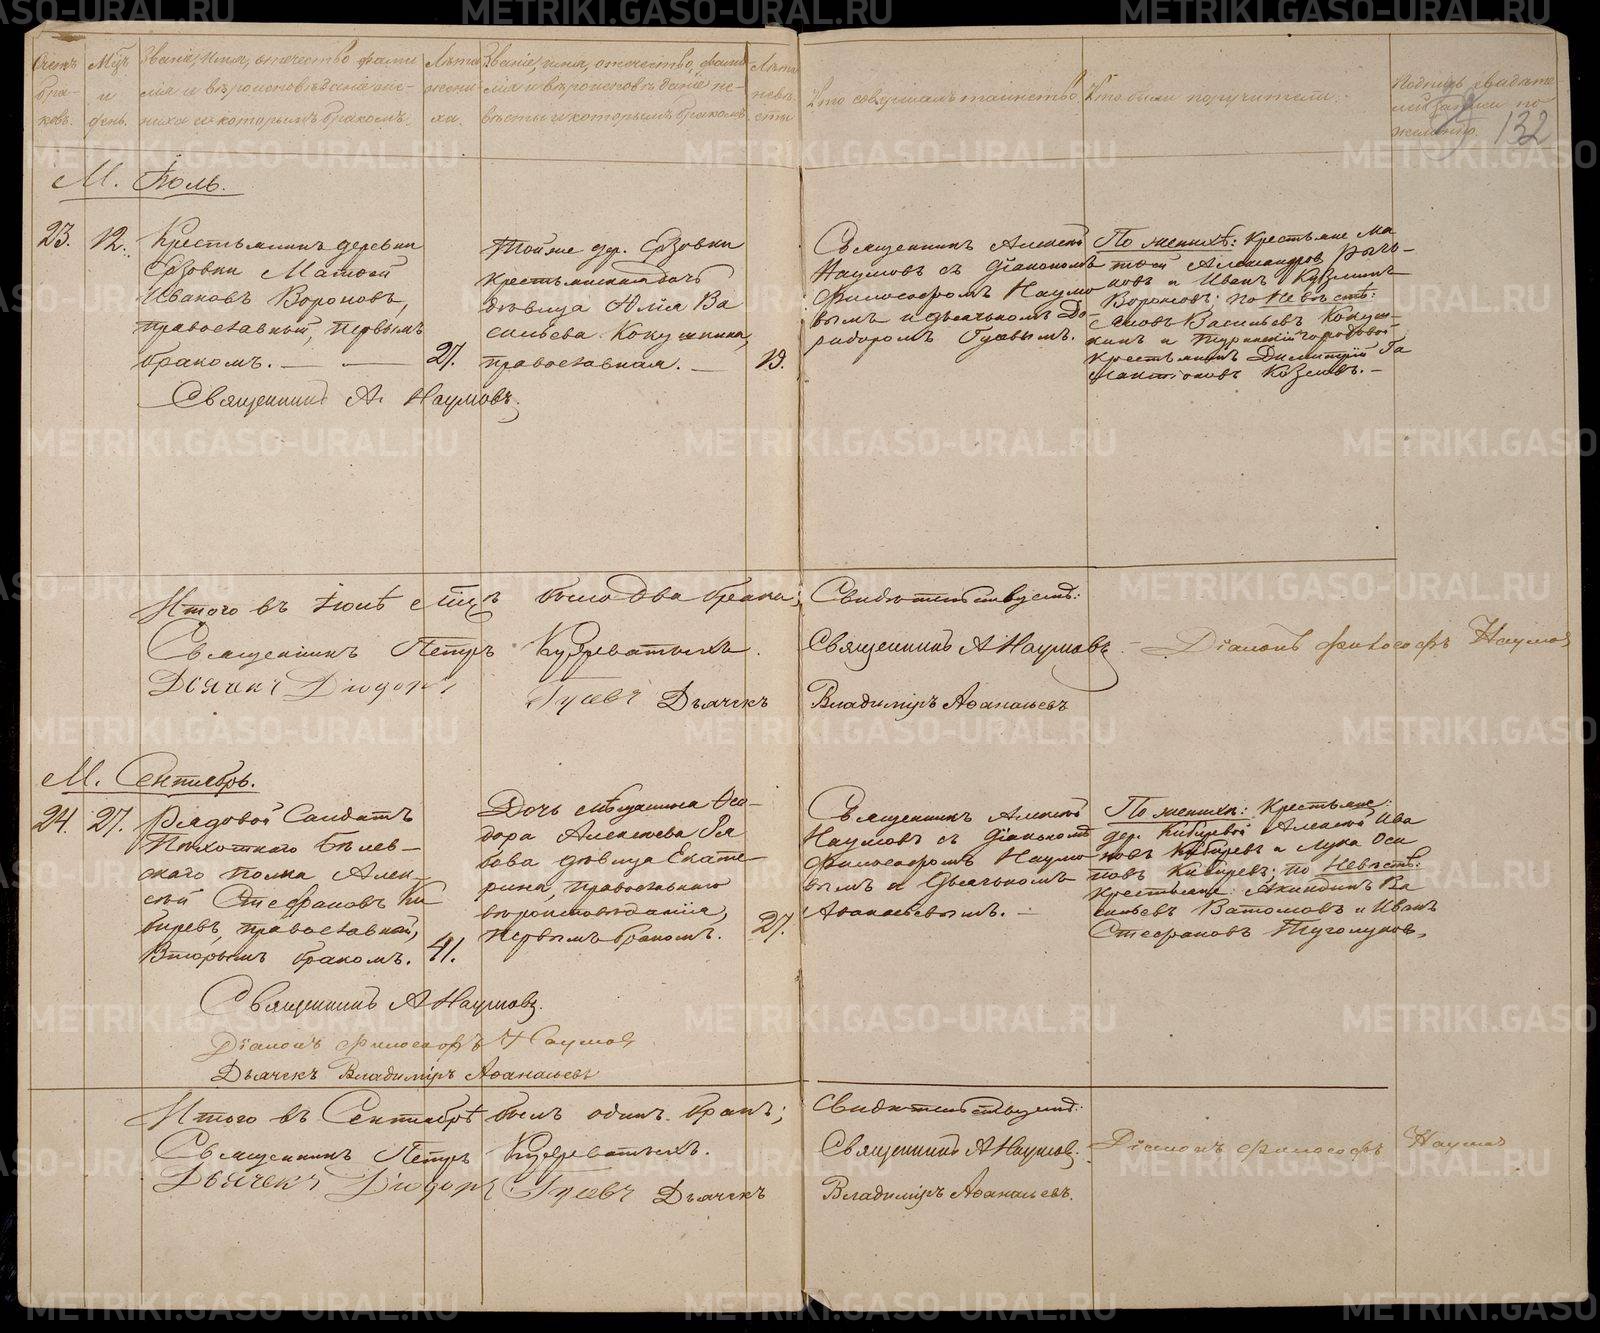 METRIKI.GASO-URAL.RU
Счетъ браковъ.
Мѣц. и день.
Званіе, имя, отчество, фамилія и вѣроисповѣданіе жениха и которымъ бракомъ.
Лѣта жениха.
Званіе, имя, отчество, фамилія и вѣроисповѣданіе невѣсты и которымъ бракомъ.
Лѣта невѣсты
Кто совершалъ таинство.
Кто были поручители.
Подпись свидѣтелей записи по желанію.
132
М. Іюль.
23.
12.
Крестьянинъ деревни
Ерзовки Матөей
Ивановъ Вороновъ,
православный, первымъ
бракомъ. —
27.
Тойже др. Ерзовки
крестьянская дочь
дѣвица Юлія Ва
сильева Кокушкина,
православная. —
19.
Священникъ Алексѣй
Наумовъ съ діакономъ
Философомъ Наумо
вымъ и дьячькомъ Дő-
родоромъ Гусевымъ.
По женихѣ: Крестьяне Ма
твѣй Александров Рыч-
ковъ и Иванъ Кузминъ
Вороновъ; по Невѣстѣ:
Яковъ Васильевъ Кокуш-
кинъ и Туринскій городовой
крестьянинъ Димитрій Га
лактіоновъ Козловъ. —
Священникъ А. Наумовъ.
Итого въ Іюлѣ мѣц. было два брака;
Свидѣтельствуютъ:
Священникъ Петръ Кудреватыхъ.
Священникъ А Наумовъ
Діаконъ Философъ Наумов
Дьячекъ Діодоръ Гусевъ
Дьячекъ Владиміръ Аөанасьевъ
М. Сентябрь.
24.
27.
Рядовой Солдатъ
Пѣхотнаго Бѣлев-
скаго полка Алек-
сѣй Стефановъ Ки
биревъ, православный,
Вторымъ бракомъ.
41.
Дочь мѣщанина Өео-
дора Алексѣева Ря
бова дѣвица Екате-
рина, православнаго
вѣроисповѣданія,
первымъ бракомъ.
27.
Священникъ Алексѣй
Наумовъ съ діакономъ
Философомъ Наумо
вымъ и Дьячькомъ
Аөанасьевымъ. —
По женихѣ: Крестьяне
дер. Кибиревой Алексѣй Ива
новъ Кибиревъ и Лука Оси
повъ Кибиревъ; по Невѣстѣ:
крестьяне Акиндинъ Ва
сильевъ Ватомовъ и Иванъ
Стефановъ Туголуковъ,
Священникъ А Наумовъ.
Діаконъ Философъ Наумов
Дьячекъ Владиміръ Аөанасьевъ
Итого въ Сентябрѣ былъ одинъ бракъ;
Свидѣтельствуютъ:
Священникъ Петръ Кудреватыхъ.
Священникъ А Наумов.
Діаконъ Философъ Наумов
Дьячекъ Діодоръ Гусевъ
Дьячекъ Владиміръ Аөанасьевъ.